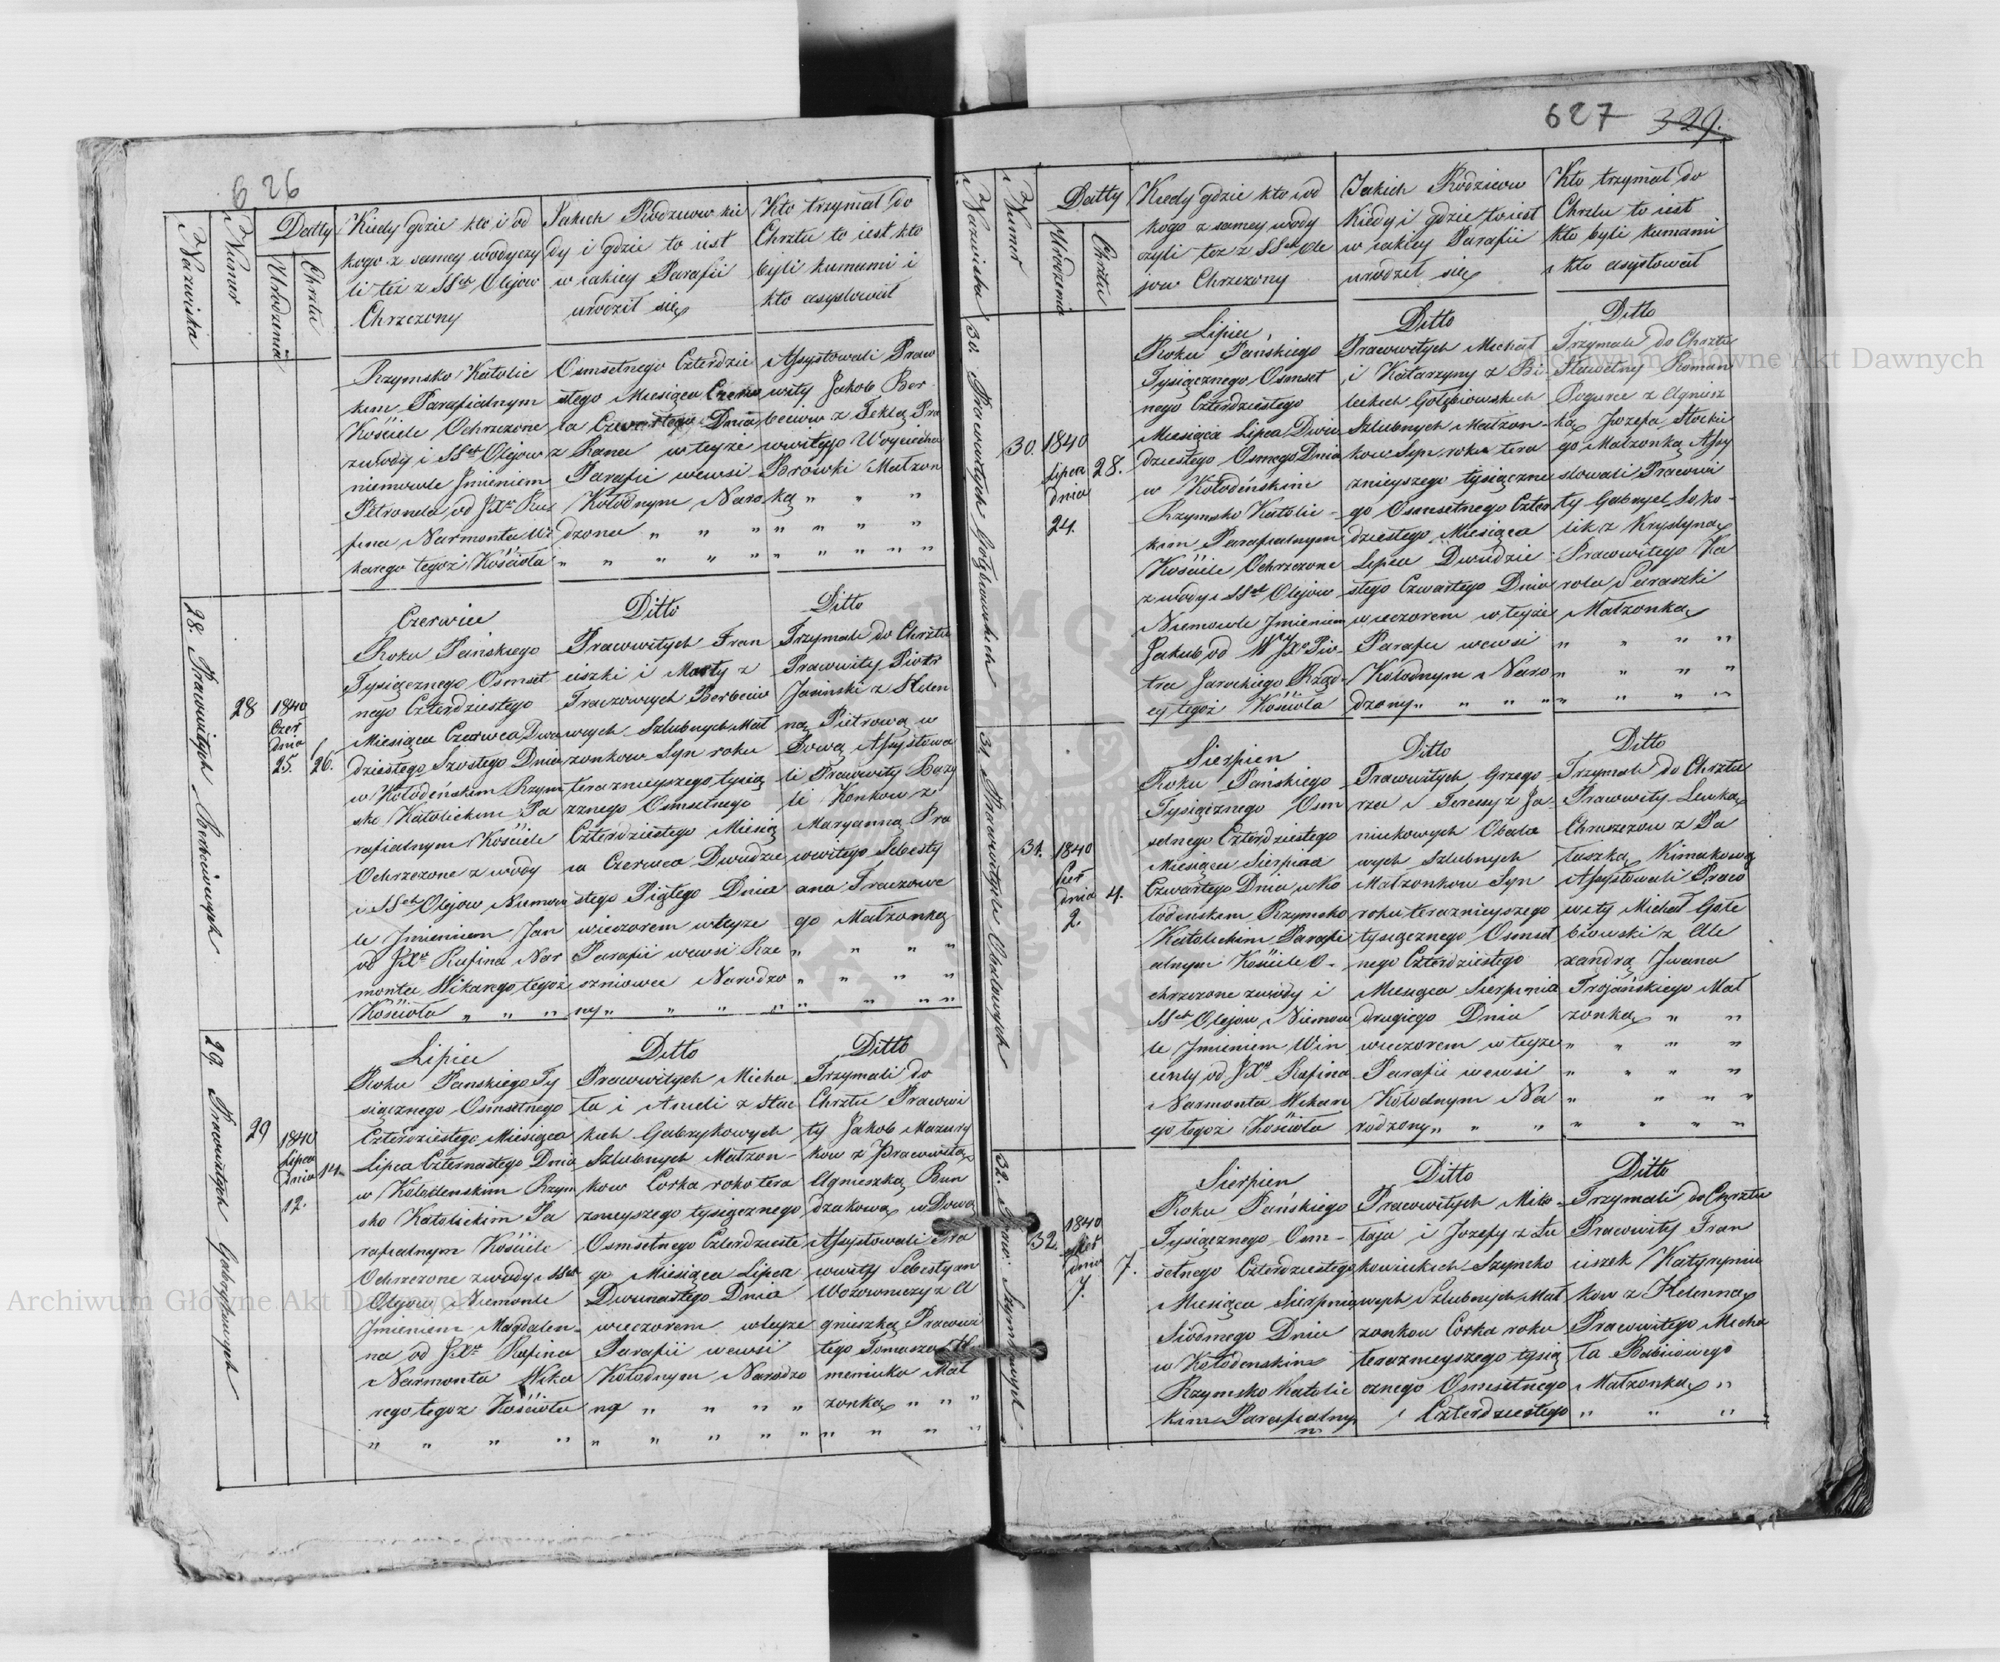 626
Nazwiska
Numer
Datty
Urodzenia
Chrztu
Kiedy gdzie kto i od
kogo z samey wody czy
li też z SSch Olejow
Chrzczony
Jakich Rodziców kie
dy i gdzie to iest
w iakiey Parafii
urodził się
Kto trzymał do
Chrztu to iest kto
byli kumami i
kto asystował
Rzymsko Katolic
kim Parafialnym
Kościele Ochrzczone
z wody i SSch Olejow
niemowle Jmieniem
Petronela od JXa Ru
fina Narmonta Wi
karego tegoż Kościoła
Osmsetnego Czterdzie
stego Miesiąca Czerw
ca Czwartego Dnia
z Rana w teyże
Parafii wewsi
Kołodnym Naro
dzona " " "
" " " " "
Assystowali Praw
wity Jakob Ber
beciow z Teklą Pra
wwitego Woyciecha
Browki Małzon
ką " " "
" " " "
" " " " "
28. Prawwitych Berbeciowych
28
1840
Czer
dnia
25.
26.
Czerwiec
Roku Pańskiego
Tysiącznego Osmset
nego Czterdziestego
Miesiąca Czerwca Dwu
dziestego Szostego Dnia
w Kołodenskim Rzym
sko Katolickim Pa
rafialnym Kościele
Ochrzczone z wody
i SSch Olejow Niemow
le Jmieniem Jan
od JXa Rufina Nar
monta Wikarego tegoż
Kościoła " " "
Ditto
Prawwitych Fran
ciszki i Marty z
Traczowych Berbecio
wych Szlubnych Mał
zonkow Syn roku
teraznieyszego tysią
cznego Osmsetnego
Czterdziestego Miesią
ca Czerwca Dwudzie
stego Piątego Dnia
wieczorem wteyże
Parafii wewsi Rze
szniowce Narodzo
ny " " "
Ditto
Trzymali do Chrztu
Prawwity Piotr
Jasinski z Helen
ną Pietrową w
Dową Assystowa
li Prawwity Bazy
li Konkow z
Maryanną Pra
wwitego Sebesty
ana Traczowe
go Małzonką
" " " "
" " " "
" " " "
29. Prawwitych Gabrzykowych
29
1840
Lipca
dnia
12.
14.
Lipiec
Roku Panskiego Ty
siącznego Osmsetnego
Czterdziestego Miesiąca
Lipca Czternastego Dnia
w Kołodenskim Rzym
sko Katolickim Pa
rafialnym Kościele
Ochrzczone z wody i SSch
Olejow Niemowle
Jmieniem Magdalen
na od JXa Rufina
Narmonta Wika
rego tegoż Kościoła
" " " "
Ditto
Prawwitych Micha
ła i Anieli z Stac
kich Gabrzykowych
Szlubnych Małzon-
kow Corka roku tera
znieyszego tysiącznego
Osmsetnego Czterdzieste
go Miesiąca Lipca
Dwunastego Dnia
wieczorem wteyże
Parafii wewsi
Kołodnym Narodzo
na " " " "
" " " " "
Ditto
Trzymali do
Chrztu Prawwi
ty Jakob Mazury
kow z Prawwitą
Agnieszką Bun
dzakową w Dową
Assystowali Pra
wwity Sebestyan
Wozowniczy z A
gnieszką Prawwi
tego Tomasza
mieniuka Mał
zonką " " "
" " " "
627 329.
Nazwiska
Numer
Datty
Urodzenia
Chrztu
Kiedy gdzie kto i od
kogo z samey wody
czyli też z SSch Ole
jow Chrzczony
Jakich Rodzicow
Kiedy i gdzie to iest
w iakiey Parafii
urodził się
Kto trzymał do
Chrztu to iest
kto byli kumami
i kto asystował
30. Prawwitych Gołębiowskich
30.
1840
Lipca
dnia
24.
28.
Lipiec
Roku Pańskiego
Tysiącznego Osmset
nego Czterdziestego
Miesiąca Lipca Dwu
dziestego Osmego Dnia
w Kołodeńskim
Rzymsko Katolic-
kim Parafialnym
Kościele Ochrzczone
z wody i SSch Olejow
Niemowle Jmieniem
Jakub od WJXa Pio
tra Jarockiego Rząd-
cy tegoż Kościoła
Ditto
Prawwitych Michał
i Katarzyny z Bi
leckich Gołębiowskich
Szlubnych Małzon-
kow Syn roku tera
znieyszego tysiączne
go Osmsetnego Czter
dziestego Miesiąca
Lipca Dwudzie
stego Czwartego Dnia
wieczorem w teyże
Parafii wewsi
Kołodnym Naro
dzony " " " "
Ditto
Trzymali do Chrztu
Sławetny Roman
Pogurec z Agniesz
ką Jozefa Stocki
go Małzonką Assy
stowali Prawwi
ty Gabryel Soko-
lik z Krystyną
Prawwitego Ka
rola Saraszki
Małzonką
" " " "
" " " "
" " " "
31. Prawwitych Obalowych
31.
1840
Sier
dnia
2.
4.
Sierpien
Roku Pańskiego
Tysiącznego Osm
setnego Czterdziestego
Miesiąca Sierpnia
Czwartego Dnia w Ko
łodenskim Rzymsko
Katolickim Parafi
alnym Kościele O-
chrzczone z wody i
SSch Olejow Niemow
le Jmieniem Win
centy od JXa Rufina
Narmonta Wikar
ego tegoż Kościoła
Ditto
Prawwitych Grzego
rza i Teressy z Ja-
niukowych Obało
wych Szlubnych
Małzonkow Syn
roku teraznieyszego
tysiącznego Osmset
nego Czterdziestego
Miesiąca Sierpnia
drugiego Dnia
wieczorem w teyże
Parafii wewsi
Kołodnym Na
rodzony " " "
Ditto
Trzymali do Chrztu
Prawwity Lewka
Chruszczow z Pa
raszką Kimakową
Assystowali Praw
wity Michał Gołe
biowski z Ale
xandrą Jwana
Trojańskiego Mał
zonką " "
" " " "
" " " "
" " " "
" " " "
32. Praw: Szymkowych
32.
1840
Sier
dnia
7.
7.
Sierpien
Roku Pańskiego
Tysiącznego Osm-
setnego Czterdziestego
Miesiąca Sierpnia
Siodmego Dnia
w Kołodenskim
Rzymsko Katolic
kim Parafialny
m
Ditto
Prawwitych Miko-
łaja i Jozefy z Łu
kowickich Szymko
wych Szlubnych Mał
zonkow Corka roku
teraznieyszego tysią
cznego Osmsetnego
Czterdziestego
Ditto
Trzymali do Chrztu
Prawwity Fran
ciszek Katyryniu
kow z Helenną
Prawwitego Micha
ła Babiiowego
Małzonką "
" " "
Archiwum Główne Akt Dawnych
Archiwum Główne Akt Dawnych